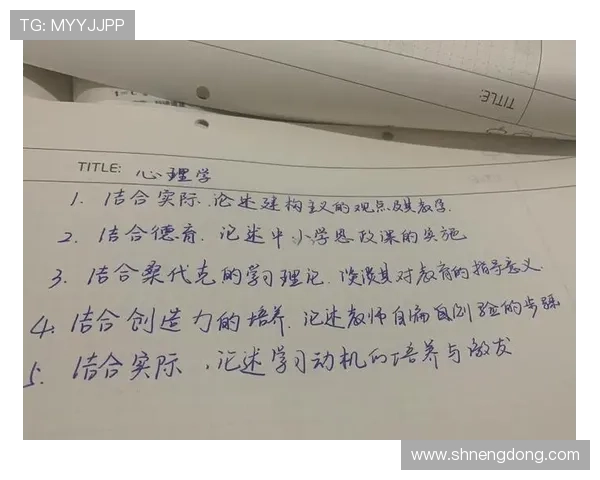 TG: MYYJJPP
TITLE:
TITLE: 心理学
1. 结合实际、论述建构主义的观点及其教学.
2. 结合德育. 论述中小学思政课的实施
3. 结合桑代克的学习理论. 谈谈其对教育的指导意义
4. 结合创造力的培养. 论述教师自编自测验的步骤
5. 结合实际，论述学习动机的培养与激发
www.shnengdong.com